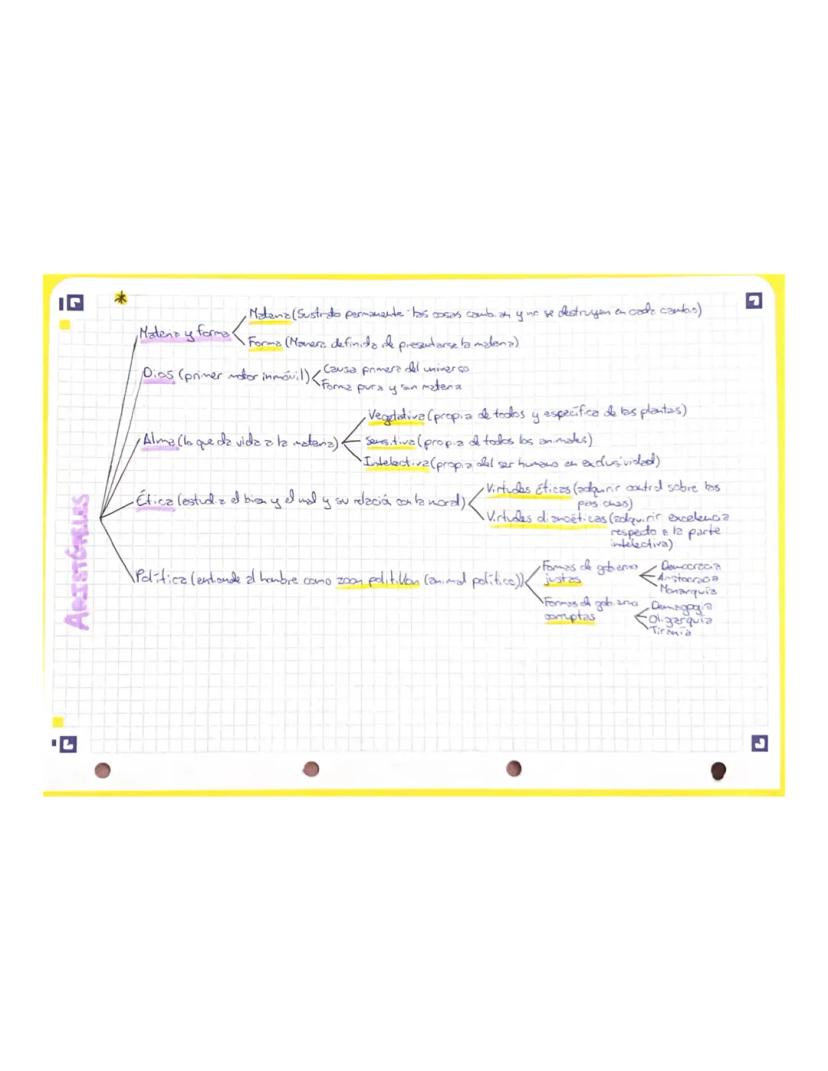 ARISTÓTELES
*
Materia y forma
Materia (Sustrato permanente: las cosas cambian y no se destruyen en cada cambio)
Forma (Manera definida de presentarse la materia)
Dios (primer motor inmóvil)
Causa primera del universo
Forma pura y sin materia
Alma (lo que da vida a la materia)
Vegetativa (propia de todos y específica de las plantas)
Sensitiva (propia de todos los animales)
Intelectiva (propia del ser humano en exclusividad)
Ética (estudia el bien y el mal y su relación con la moral)
Virtudes éticas (adquirir control sobre las
pasiones)
Virtudes dianoéticas (adquirir excelencia
respecto a la parte
intelectiva)
Política (entiende al hombre como zoon politikon (animal político))
Formas de gobierno
justas
Democracia
Aristocracia
Monarquía
Formas de gobierno
corruptas
Demagogia
Oligarquía
Tiranía